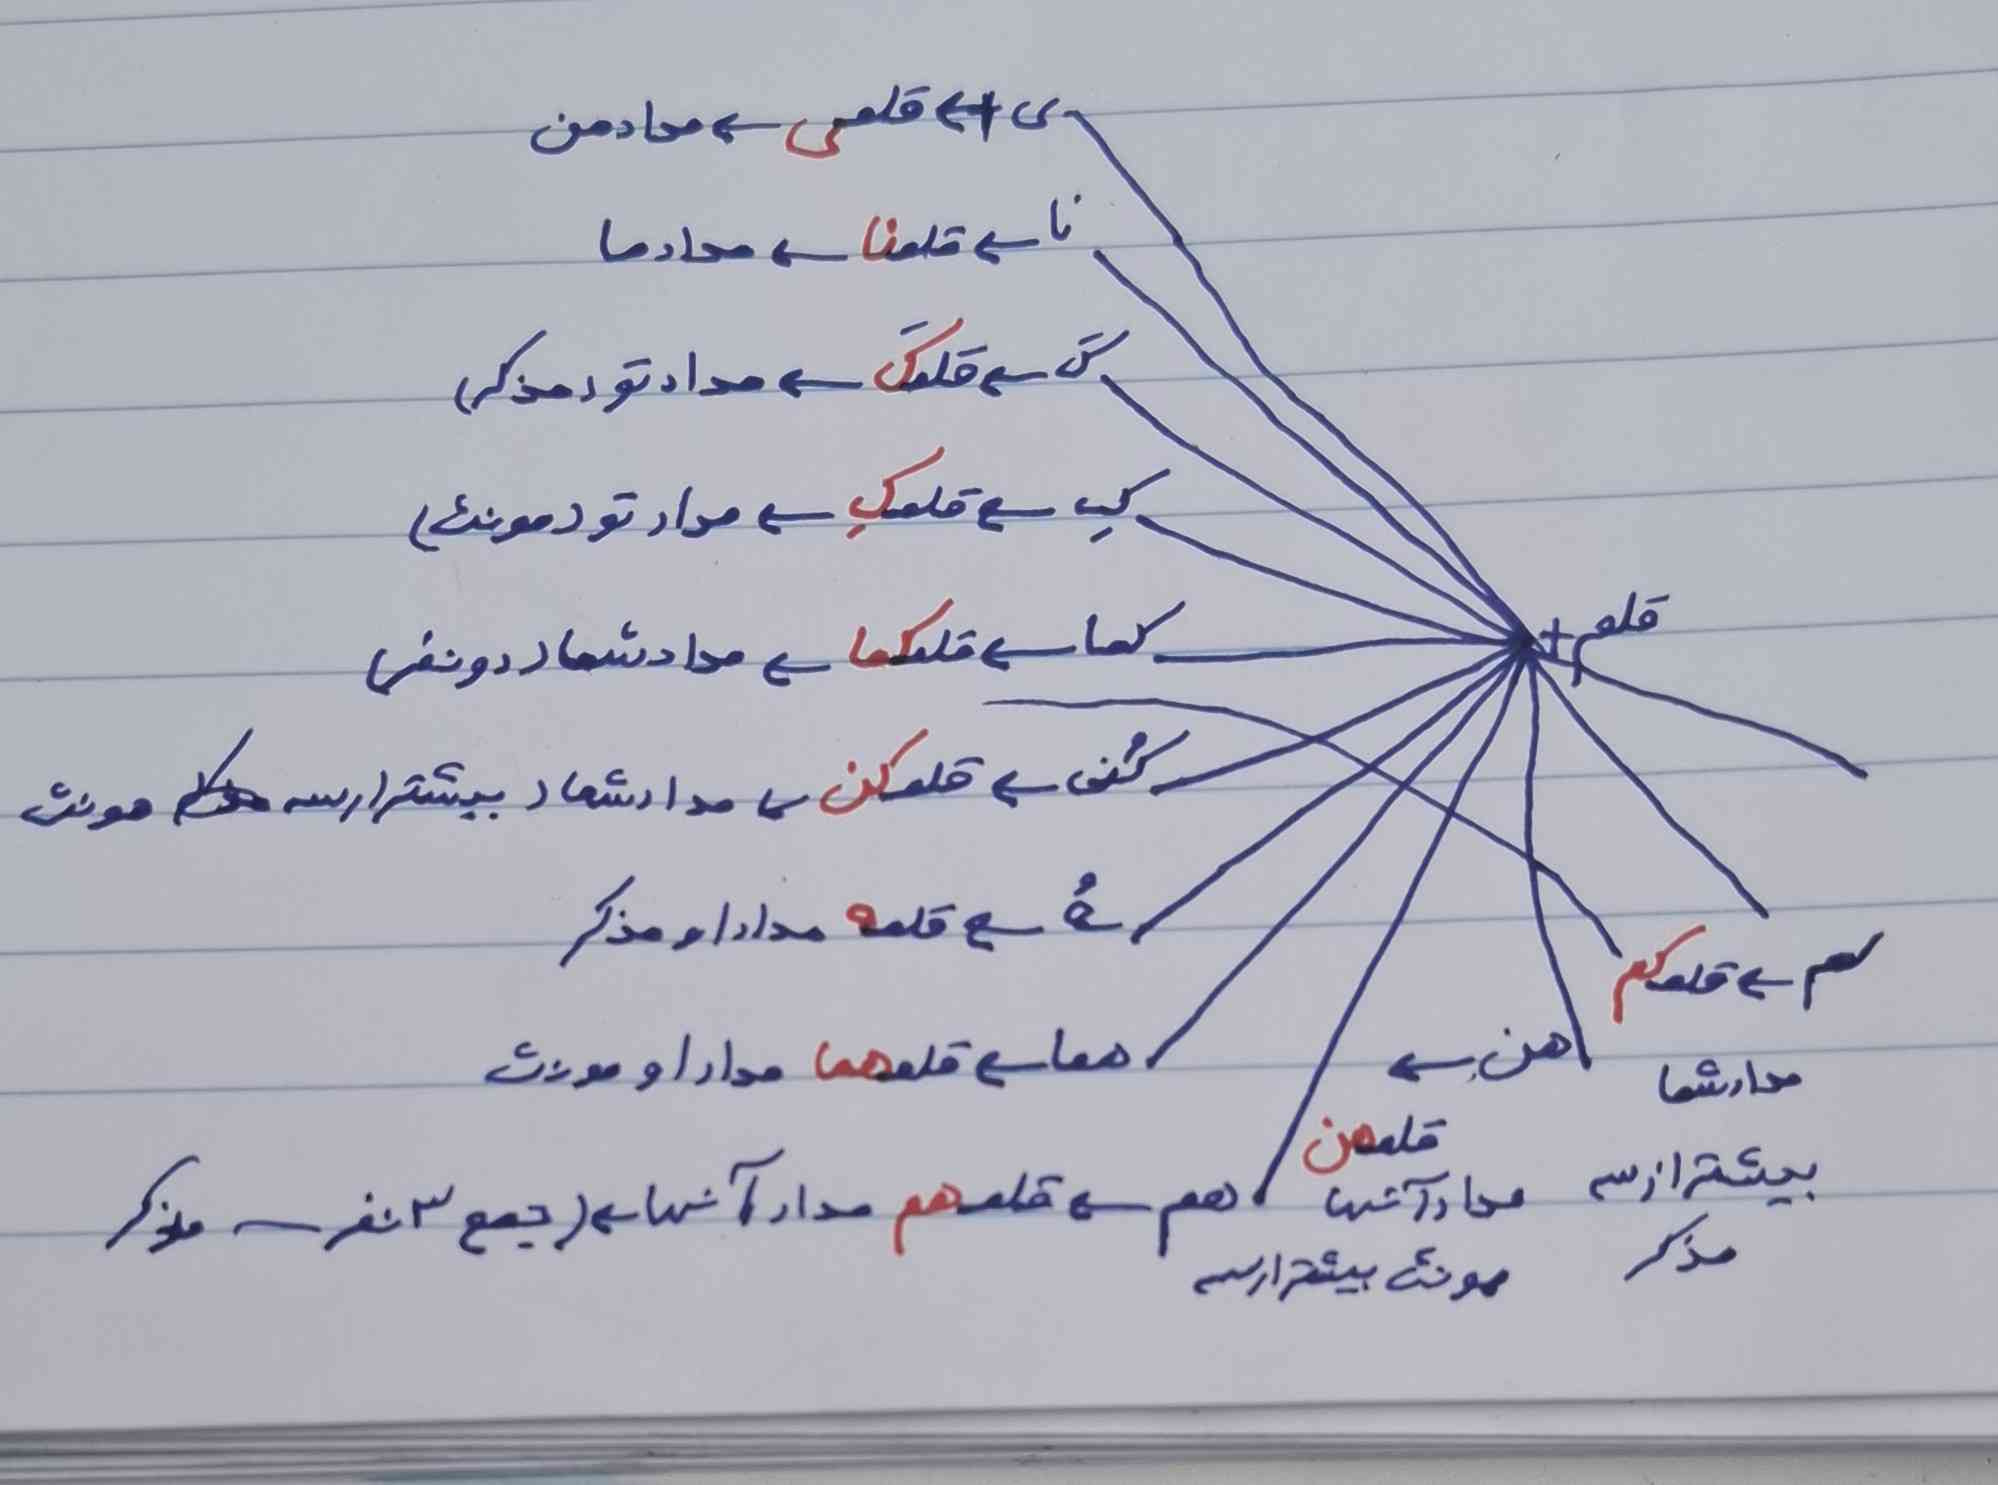 ی + ← قلمی ← مداد من
نا ← قلمنا ← مداد ما
کَ ← قلمکَ ← مداد تو (مذکر)
کِ ← قلمکِ ← مداد تو (مونث)
کما ← قلمکما ← مداد شما (دو نفر)
کُن ← قلمکن ← مداد شما (بیشتر از سه مونث
هُ ← قلمه مداد او مذکر
هما ← قلمهما مداد او مونث
هم ← قلمهم مداد آنها ← (جمع ۳ نفر — مذکر
قلم +
کم ← قلمکم
مداد شما
بیشتر از سه
مذکر
هن ←
قلمهن
مداد آنها
مونث بیشتر از سه